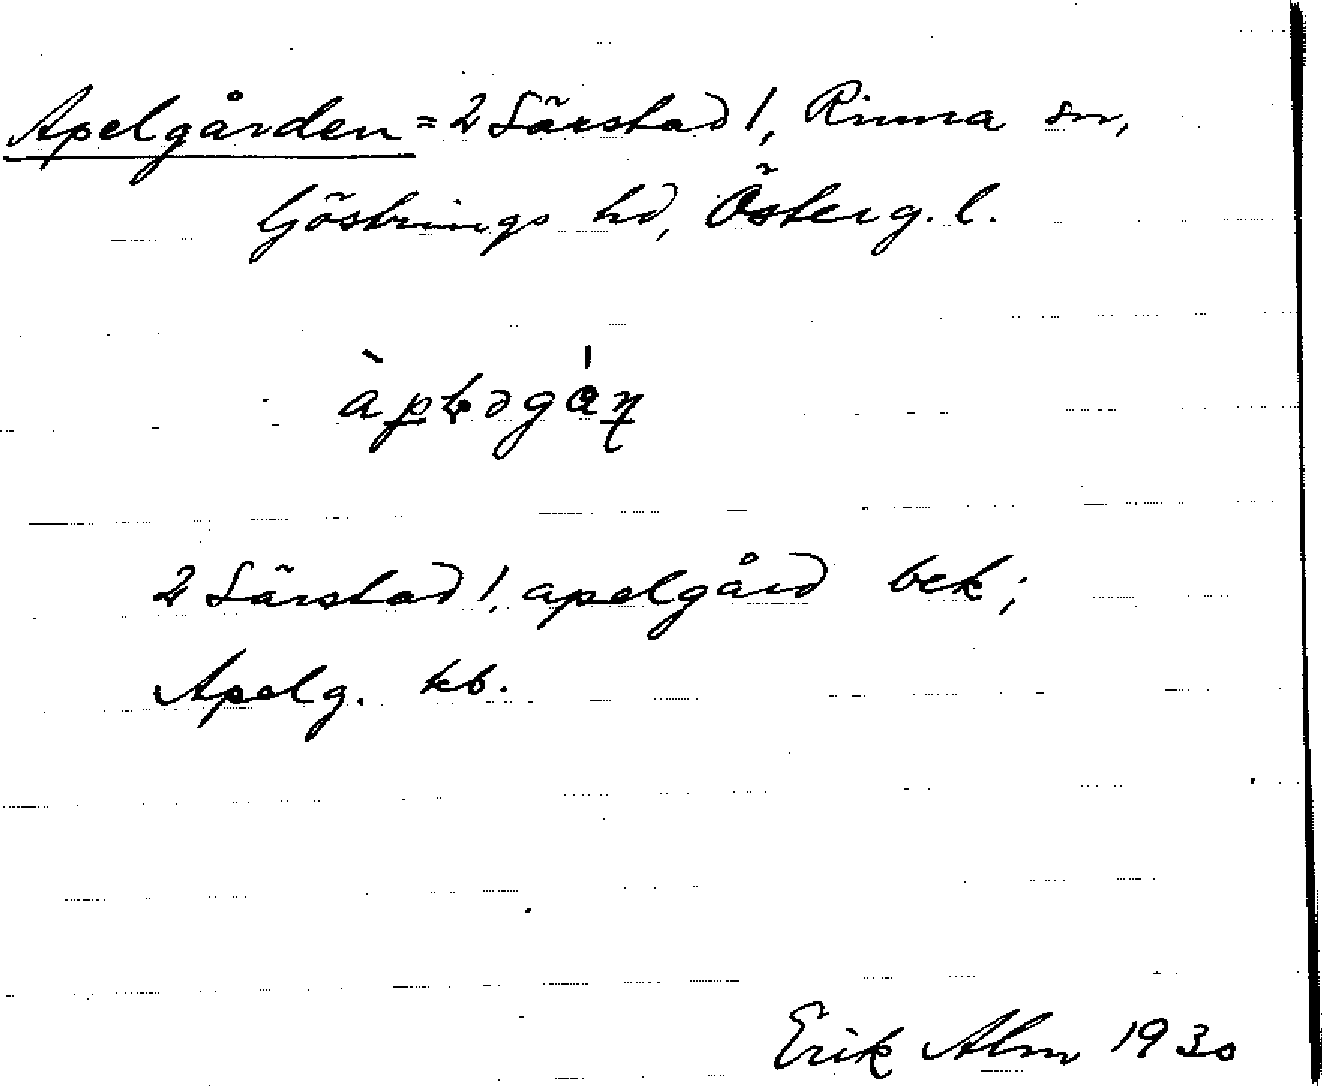 Apelgården = 2 Särstad 1, Rinna sn,
Göstrings hd, Österg. l.
2 Särstad 1, apelgård bek;
Apelg. kb.
Erik Alm 1930